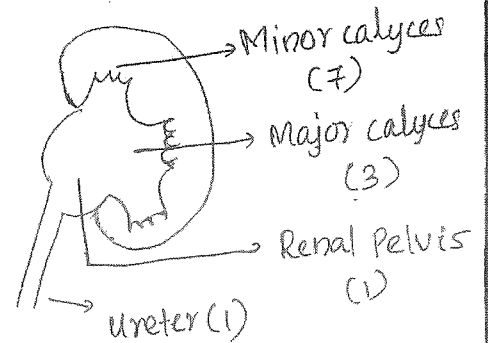 Minor calyces
(7)
Major calyces
(3)
Renal Pelvis
(1)
Ureter (1)